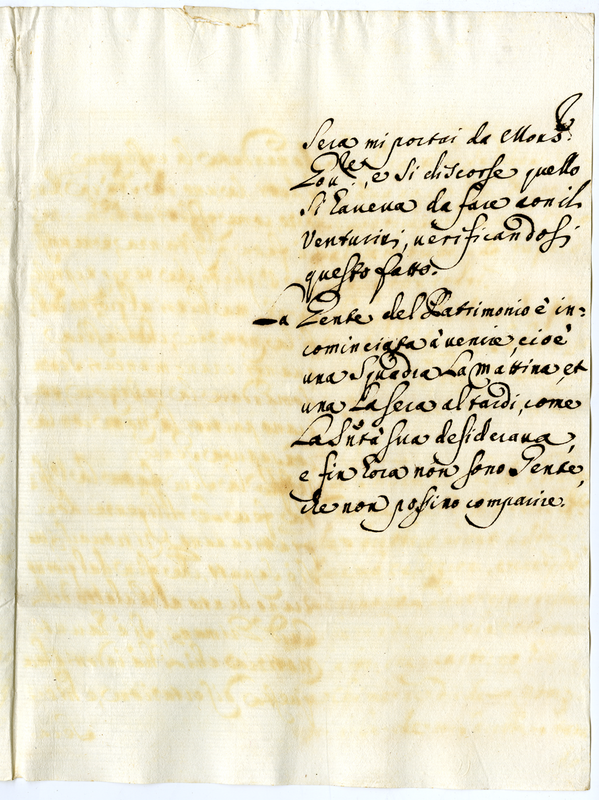 Sera mi portai da Mons.r
Gov.re, e si discorse quello
si haveva da fare con il
Venturini, verificandosi
questo fatto.
La Gente del Patrimonio è in=
cominciata à venire, cioè
una Squadra La mattina, et
una La sera al tardi, come
La S.ntà sua desiderava,
e fin hora non sono Gente,
che non possino comparire.